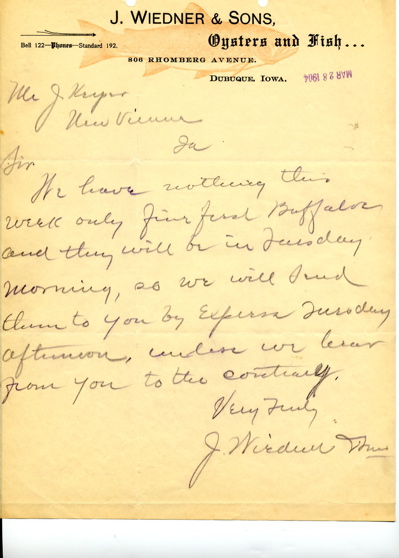 J. WIEDNER & SONS,
Bell 122—Phones—Standard 192.
Oysters and Fish...
806 RHOMBERG AVENUE.
DUBUQUE, IOWA.
MAR 28 1904
Mr J.
New Vienna
Ia
Sir
We have nothing this
week only fine first Buffaloe
and they will be in Tuesday
Morning, so we will send
them to you by Express Tuesday
afternoon, unless we hear
from you to the contrary.
Very Truly
J. Wiedner Sons